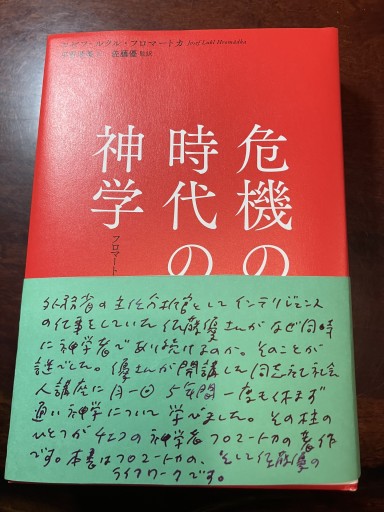 ルクル・フロマートカ Josef Lukl Hromádka
佐藤優 監訳
危機の
時代の
神学
フロマート
外務省の主任分析官としてインテリジェンス
の仕事をしていた佐藤優さんがなぜ同時
に神学者であり続けるのか。そのことが
謎でした。優さんが開講した同志社社会
人講座に月一回 5年間一度も休まず
通い神学について学びました。その柱の
ひとつがチェコの神学者フロマートカの著作
です。本書はフロマートカの、そして佐藤優の
ライフワークです。